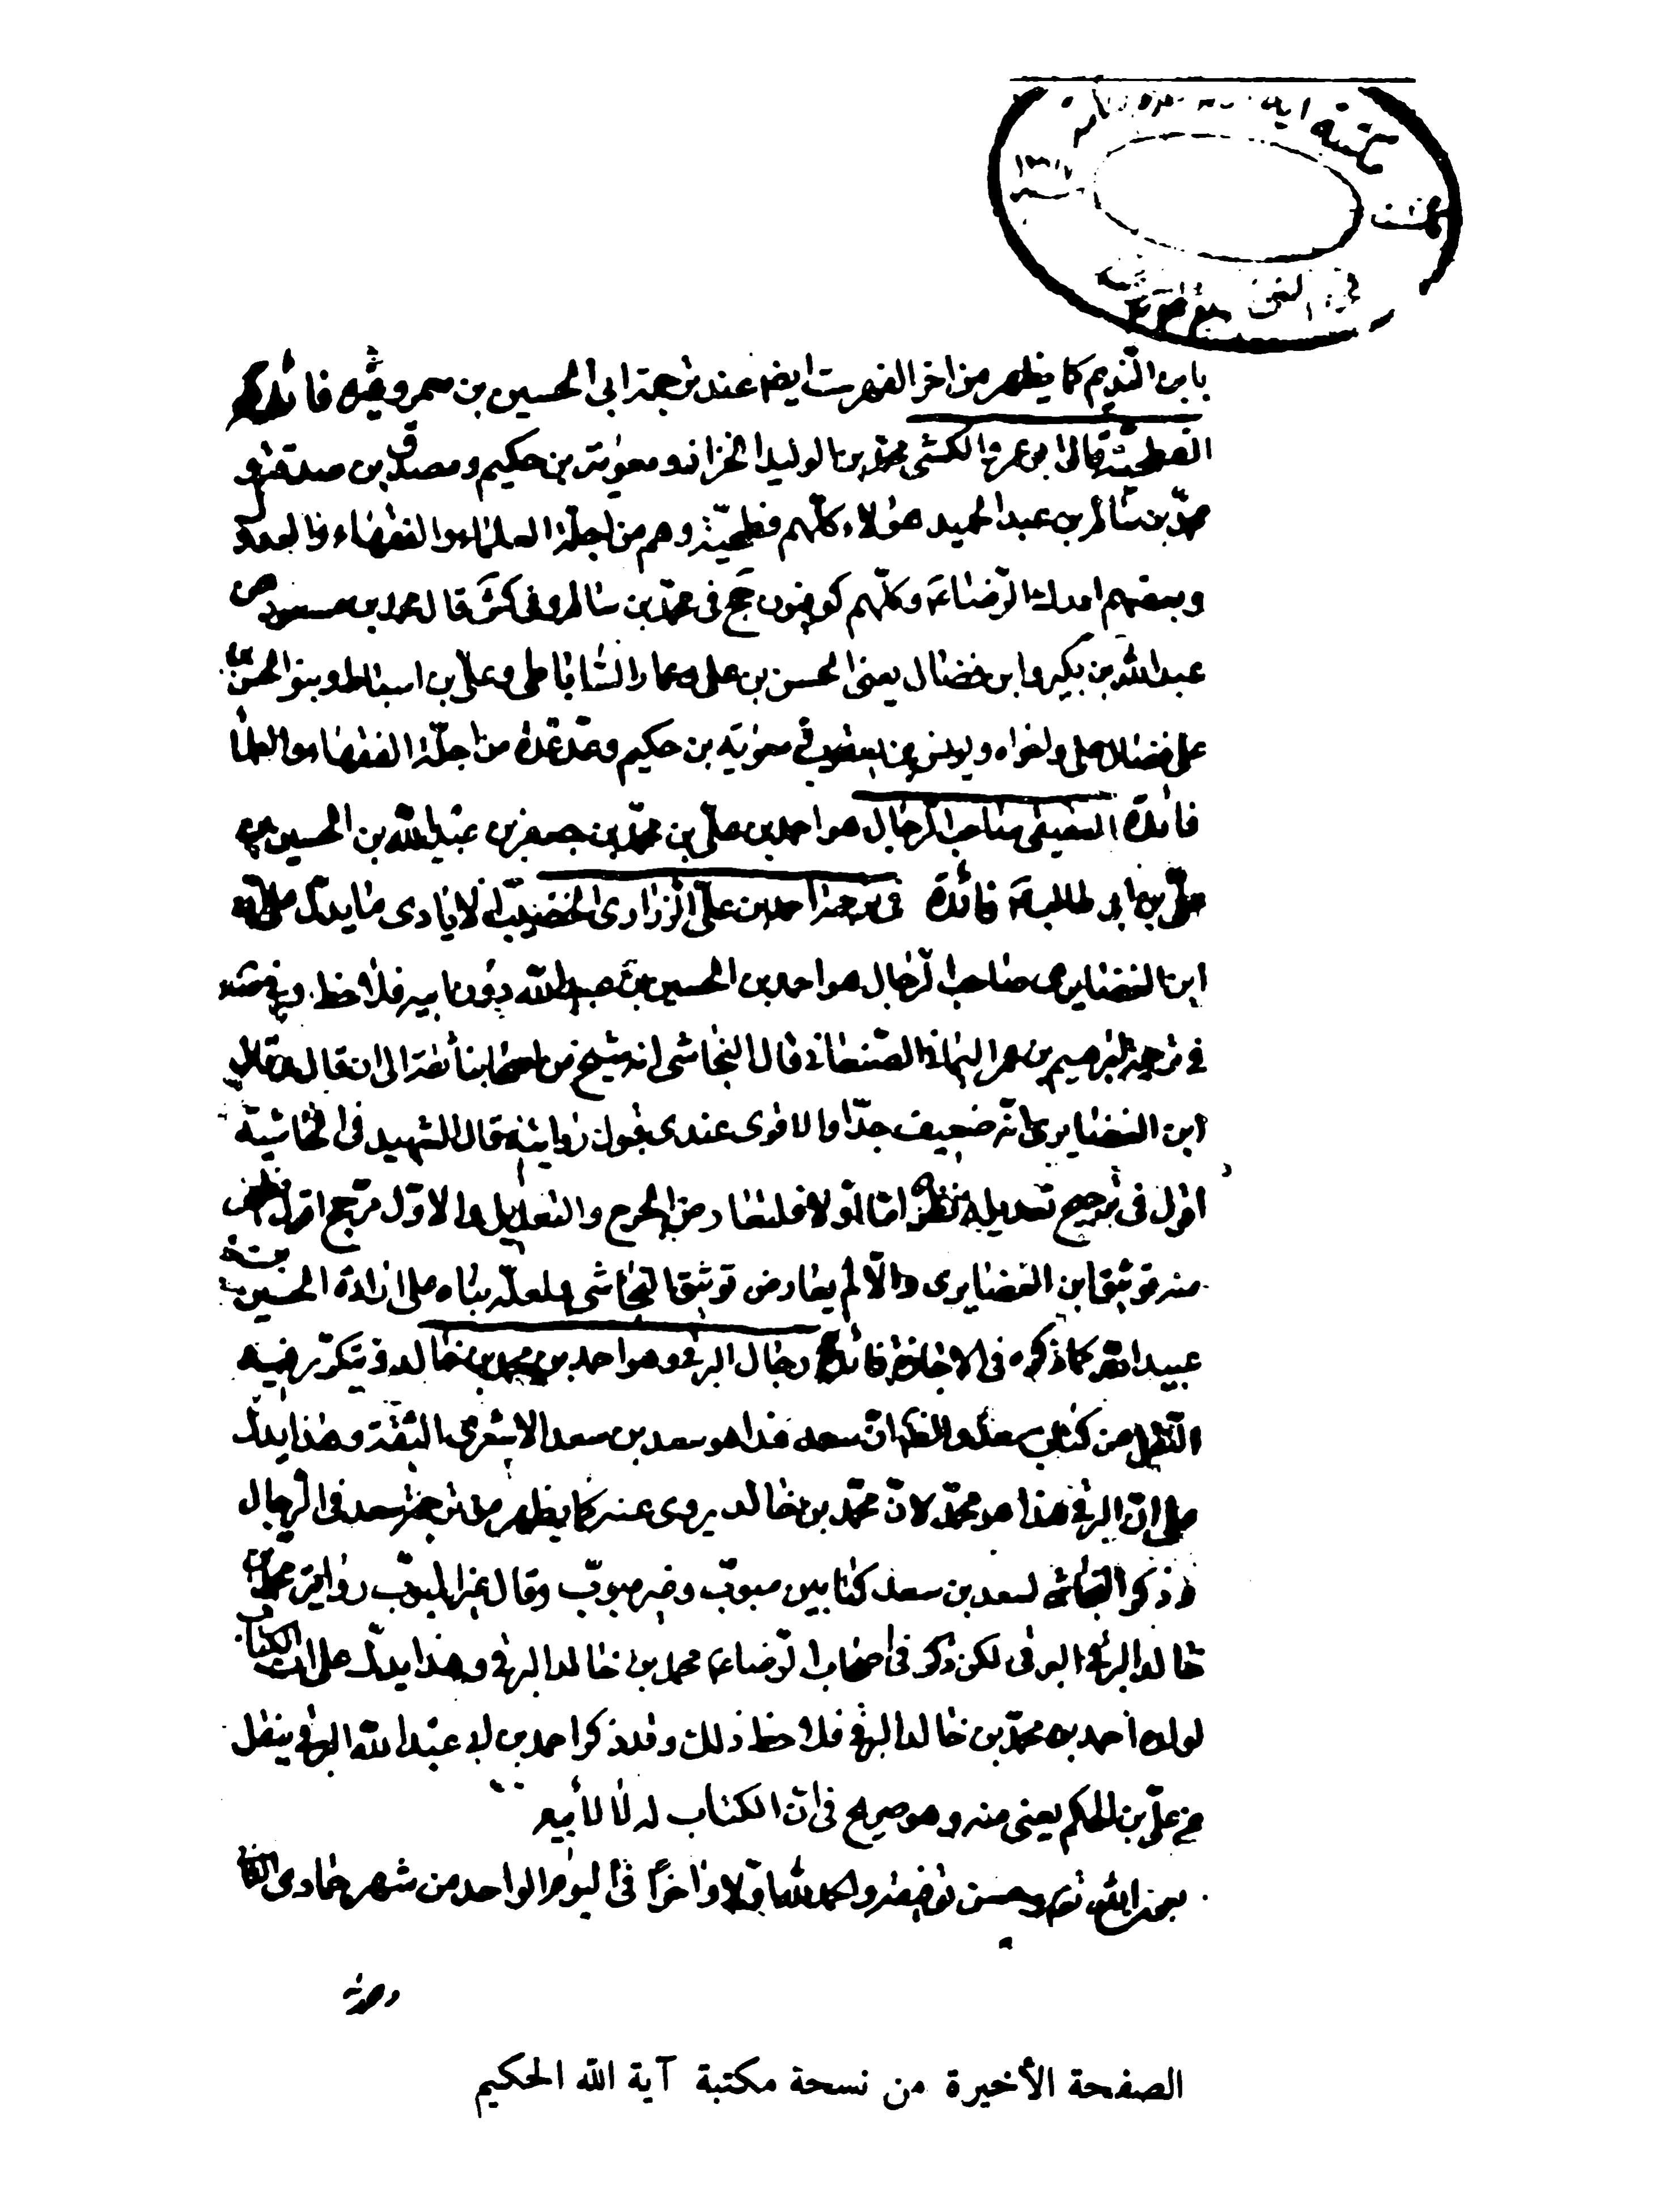 مكتبة
بابن النديم كما يظهر من اخر الفهرست ايضا عند ترجمة ابى الحسين بن سمرويه فائدة
الفطحية قال ابو عمرو الكشى محمد بن الوليد الخزاز ومعوية بن حكيم ومصدق بن صدقة و
محمد بن سالم بن عبد الحميد هؤلاء كلهم فطحية وهم من اجلة العلماء والفقهاء والعدول
وبعضهم ادرك الرضاء وكلهم كوفيون جخ فى محمد بن سالم وفى كش قال محمد بن مسعود
عبد الله بن بكير وابن فضال يعنى الحسن بن على وعمار الساباطى وعلى بن اسباط وبنو الحسن بن
على بن فضال على واخواه ويونس بن يعقوب فى معوية بن حكيم وعد عدة من اجلة الفقهاء والعلماء
فائدة العقيقى صاحب الرجال هو احمد بن على بن محمد بن جعفر بن عبد الله بن الحسين بن
على بن ابى طالب فائدة فى ترجمة احمد بن على الرازى الخضيب الايادى ما يدل على ان
ابن الغضايرى صاحب الرجال هو احمد بن الحسين بن عبيد الله دون ابيه فلاحظ
فى ترجمة ابرهيم بن عمر اليمانى الصنعانى قال النجاشى انه شيخ من اصحابنا ثقة الى ان قال وقال
ابن الغضايرى انه ضعيف جدا والاقوى عندى قبول روايته قال الشهيد فى الحاشية
اقول فى ترجيح تعديله نظر اما اولا فلتعارض الجرح والتعديل والاول مرجح
منه توثيق ابن الغضايرى والا لم يعارض توثيق النجاشى ولعله بناه على ارادة الحسين بن
عبيد الله كما ذكره فى الاجازة فائدة رجال البرقى وهو احمد بن محمد بن خالد وقد تكرر فيه
النقل من كتاب سعد والظ ان سعد هذا هو سعد بن سعد الاشعرى الثقة وهذا يدل
على ان البرقى هذا هو محمد لان محمد بن خالد يروى عنه كما يظهر من ترجمة سعد فى الرجال
وذكر النجاشى لسعد بن سعد كتابين مبوب وغير مبوب وقال غير المبوب رواية محمد بن
خالد البرقى لكن ذكر فى اصحاب الرضاء محمد بن خالد البرقى وهذا يدل على ان الكتاب
لولده احمد بن محمد بن خالد البرقى فلاحظ ذلك وقد ذكر احمد بن ابى عبد الله البرقى ينقل
عن على بن الحكم يعنى منه وهو صريح فى ان الكتاب له لا لأبيه
بعون الله وحسن توفيقه والحمد لله اولا واخرا فى اليوم الواحد من شهر جمادى
الصفحة الأخيرة من نسخة مكتبة آية الله الحكيم